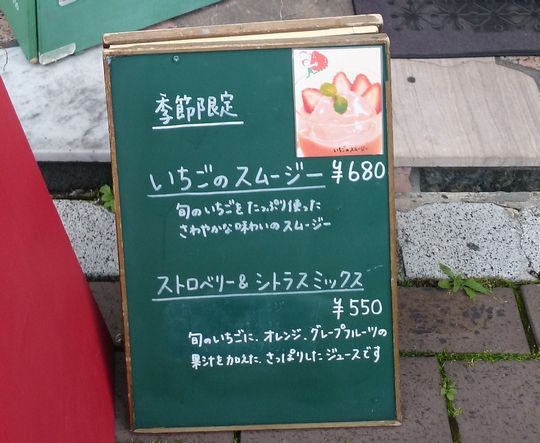 季節限定
いちごのスムージー
いちごのスムージー ¥680
旬のいちごをたっぷり使った
さわやかな味わいのスムージー
ストロベリー&シトラスミックス
¥550
旬のいちごに、オレンジ、グレープフルーツの
果汁を加えた、さっぱりしたジュースです